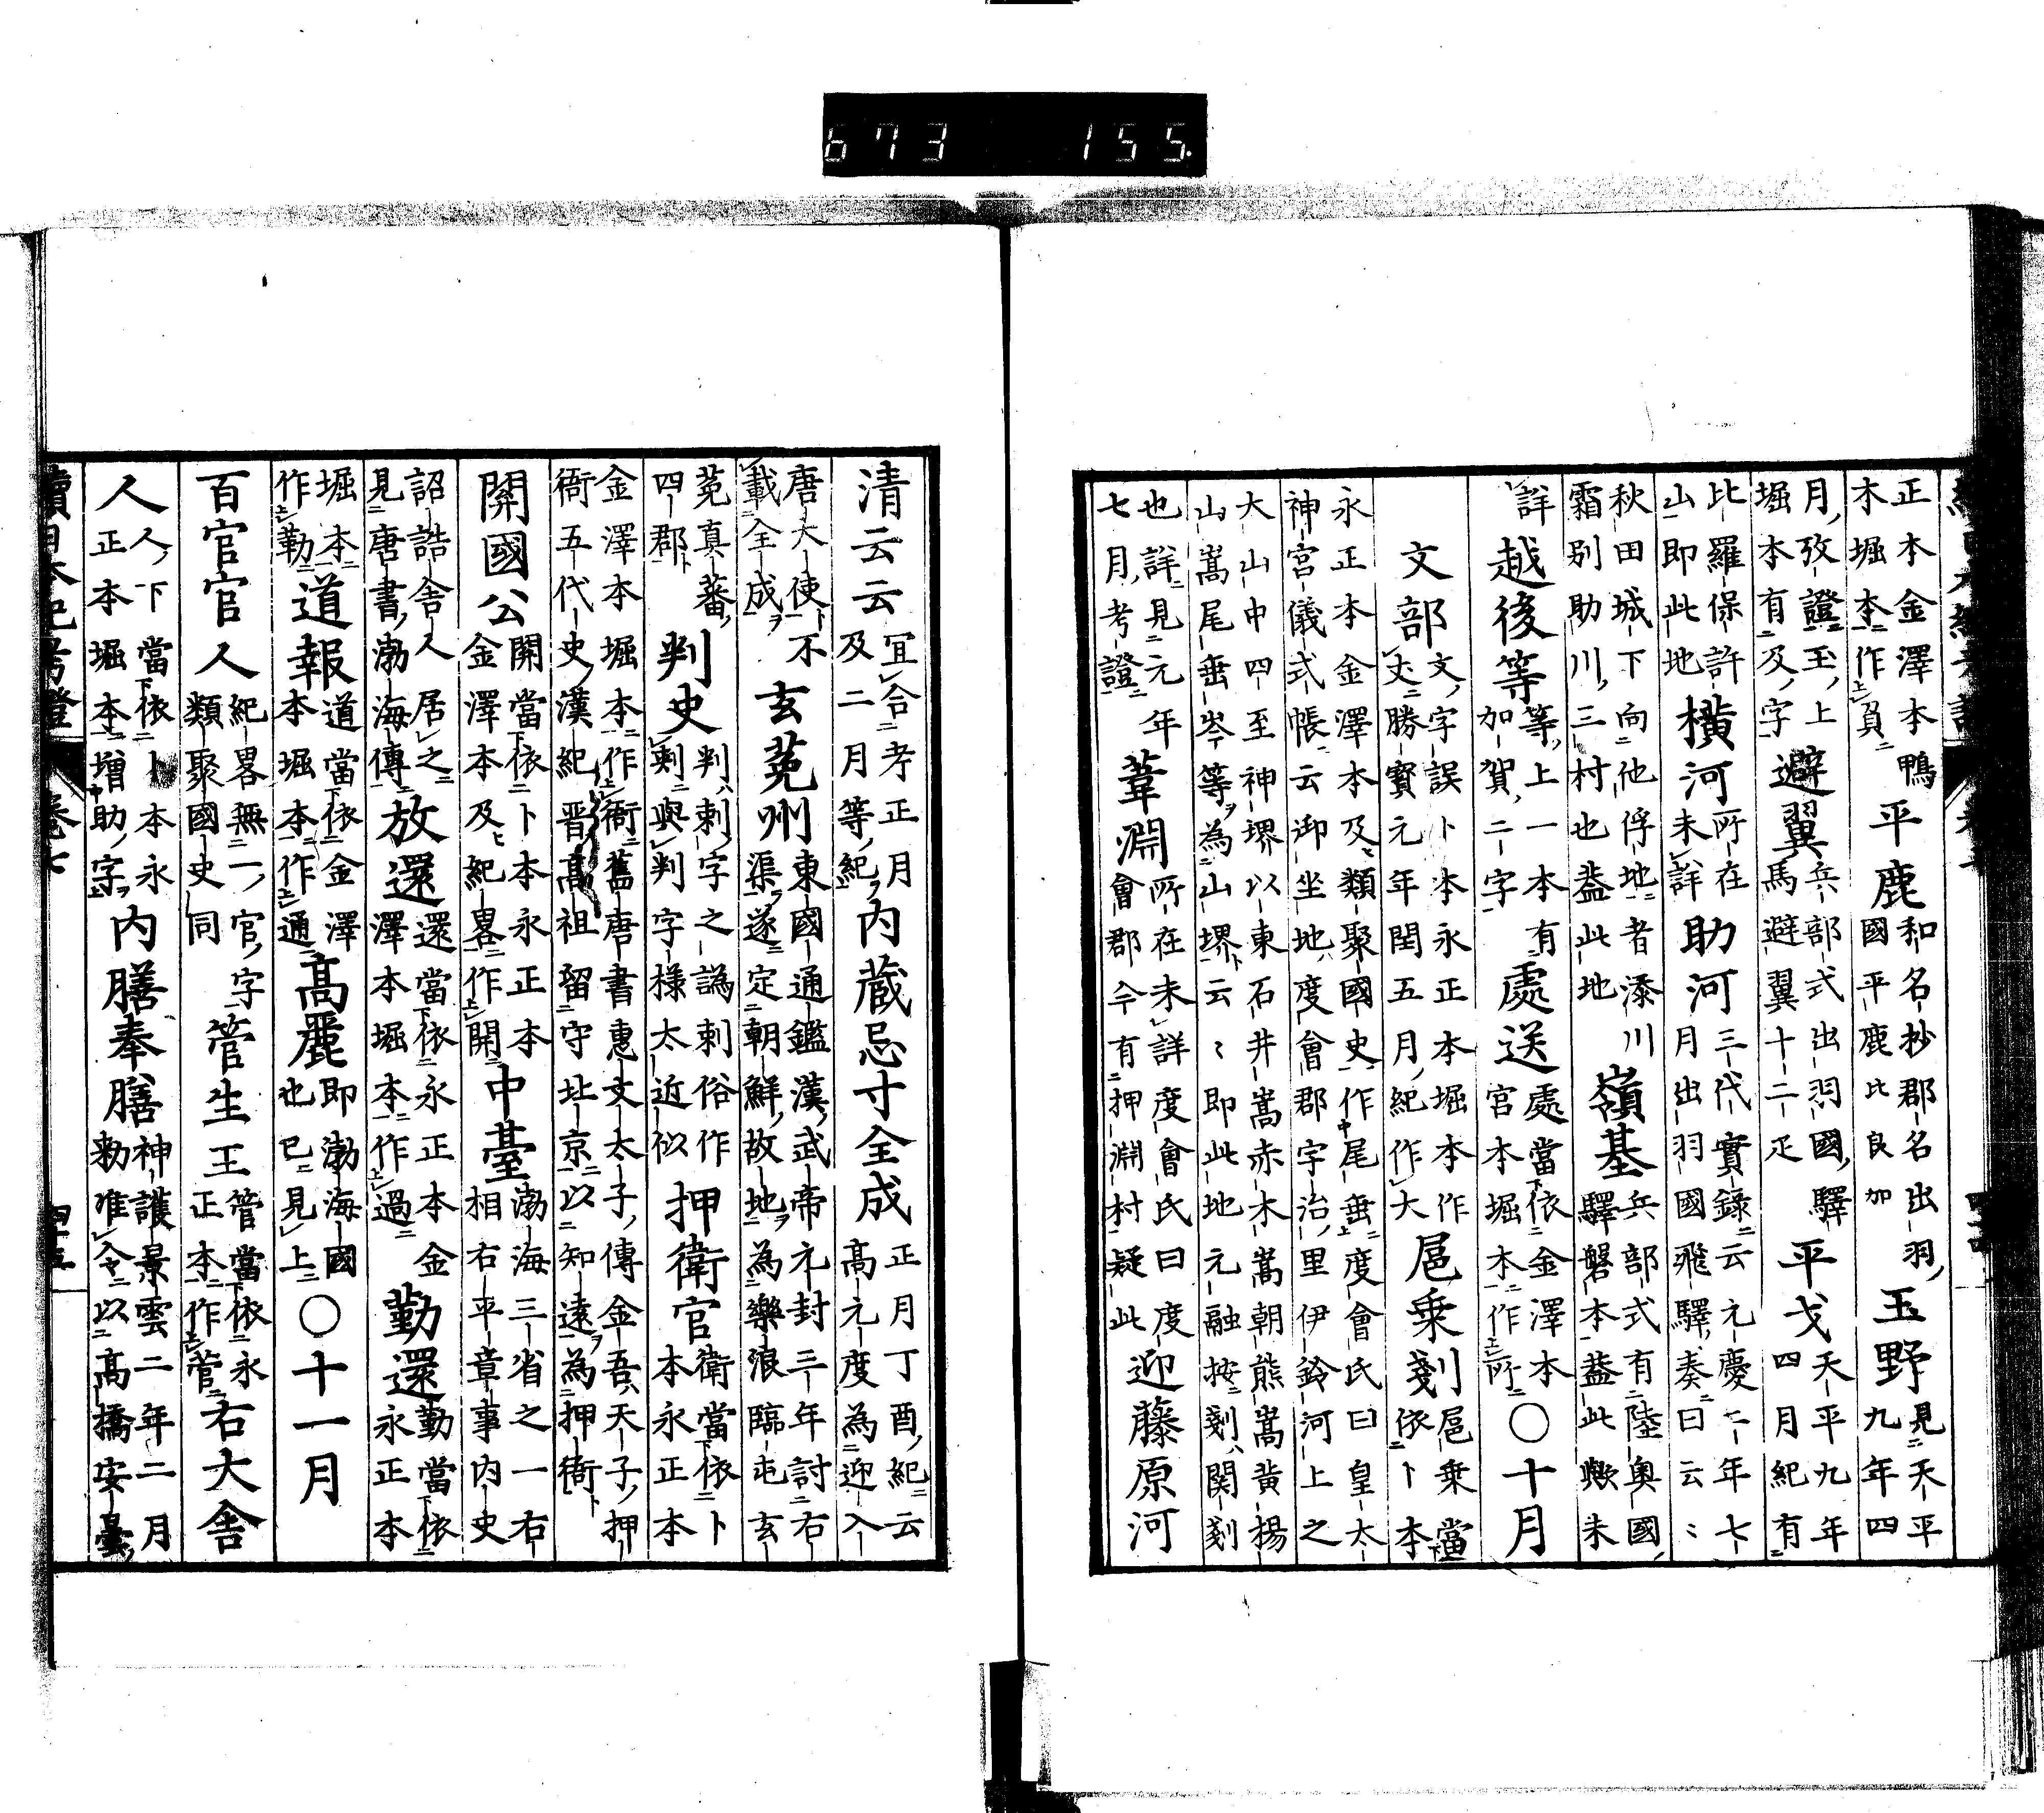 673 155.
正本金澤本鴨木堀本作負 平鹿 和名抄郡名出羽國平鹿比良加 玉野 見天平九年四
月攷證至上堀本有及字 避翼 兵部式出羽國驛馬避翼十二疋 平戈 天平九年四月紀有
比羅保許山即此地 橫河 所在未詳 助河 三代實錄云元慶二年七月出羽國飛驛奏曰云〻
秋田城下向化俘地者添川霜別助川三村也蓋此地 嶺基 兵部式有陸奥國驛磐本蓋此歟未
詳 越後等 等上一本有加賀二字 處送 處當依金澤本宮本堀本作所 〇十月
文部 文字誤卜本永正本堀本作丈勝寳元年閏五月紀作大 扈乗剗 扈乗當依卜本
永正本金澤本及類聚國史作尾垂度會氏曰皇太神宮儀式帳云御坐地度會郡宇治里伊鈴河上之
大山中四至神堺以東石井嵩赤木嵩朝熊嵩黄楊山嵩尾垂岑等為山堺云〻即此地元融按剗関剗
也詳見元年七月考證 葦淵 所在未詳度會氏曰度會郡今有押淵村疑此 迎藤原河
清云云 宜合考正月及二月等紀 内蔵忌寸全成 正月丁酉紀云高元度為迎入
唐大使不載全成 玄菟州 東國通鑑漢武帝元封三年討右渠遂定朝鮮故地為樂浪臨屯玄
菟真蕃四郡 判史 判刺字之譌刺俗作剌與判字様太近似 押衛官 衛當依卜本永正本
金澤本堀本作衙舊唐書惠文太子傳金吾天子押衙五代史漢紀晋髙祖留守北京以知遠為押衙
開國公 開當依卜本永正本金澤本及紀畧作開 中臺 渤海三省之一右相右平章事内史
詔誥舎人居之見唐書渤海傳 放還 還當依永正本金澤本堀本作過 勤還 勤當依永正本
堀本作勒 道報 道當依金澤本堀本作通 髙麗 即渤海國也已見上 〇十一月
百官官人 紀畧無一官字類聚國史同 管生王 管當依永正本作菅 右大舎
人 人下當依卜本永正本堀本増助字 内膳奉膳 神護景雲二年二月勅准令以髙橋安曇
續日本紀考證 巻七 四十五